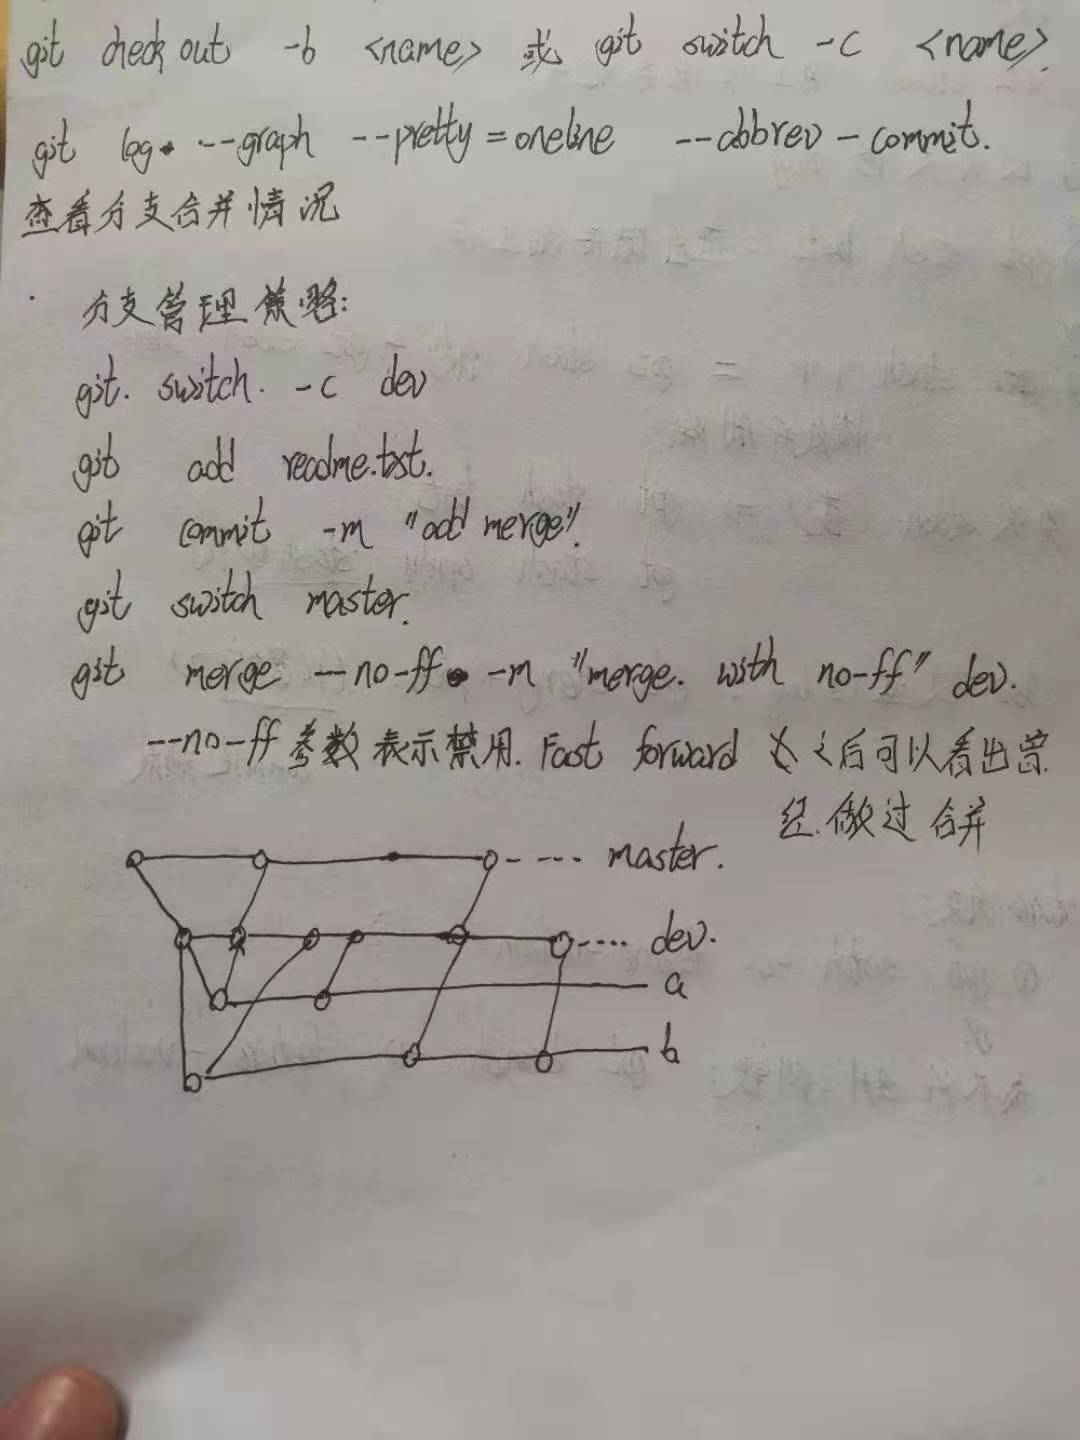 git checkout -b <name> 或 git switch -c <name>.
git log --graph --pretty=oneline --abbrev-commit.
查看分支合并情况
分支管理策略:
git. switch. -c dev
git add readme.txt.
git commit -m "add merge".
git switch master.
git merge --no-ff -m "merge. with no-ff" dev.
--no-ff 参数表示禁用. Fast forward 之后可以看出曾
经.做过合并
master.
dev.
a
b